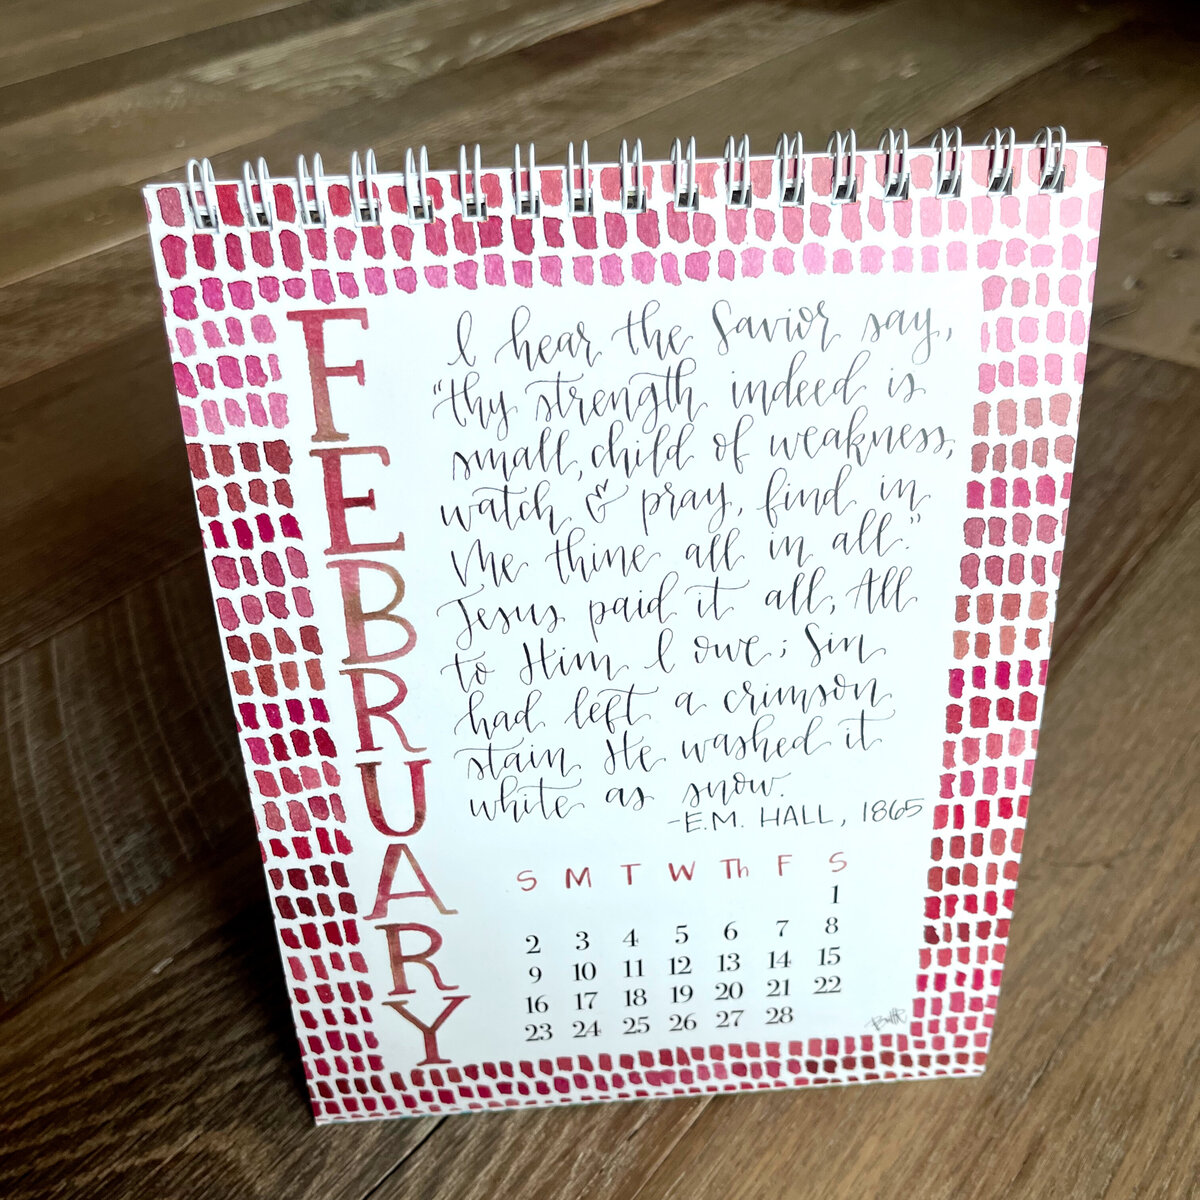 FEBRUARY
I hear the Savior say,
"thy strength indeed is
small, child of weakness,
watch & pray, find in
Me thine all in all."
Jesus paid it all, All
to Him I owe; Sin
had left a crimson
stain He washed it
white as snow.
-E.M. HALL, 1865
S M T W Th F S
1
2 3 4 5 6 7 8
9 10 11 12 13 14 15
16 17 18 19 20 21 22
23 24 25 26 27 28